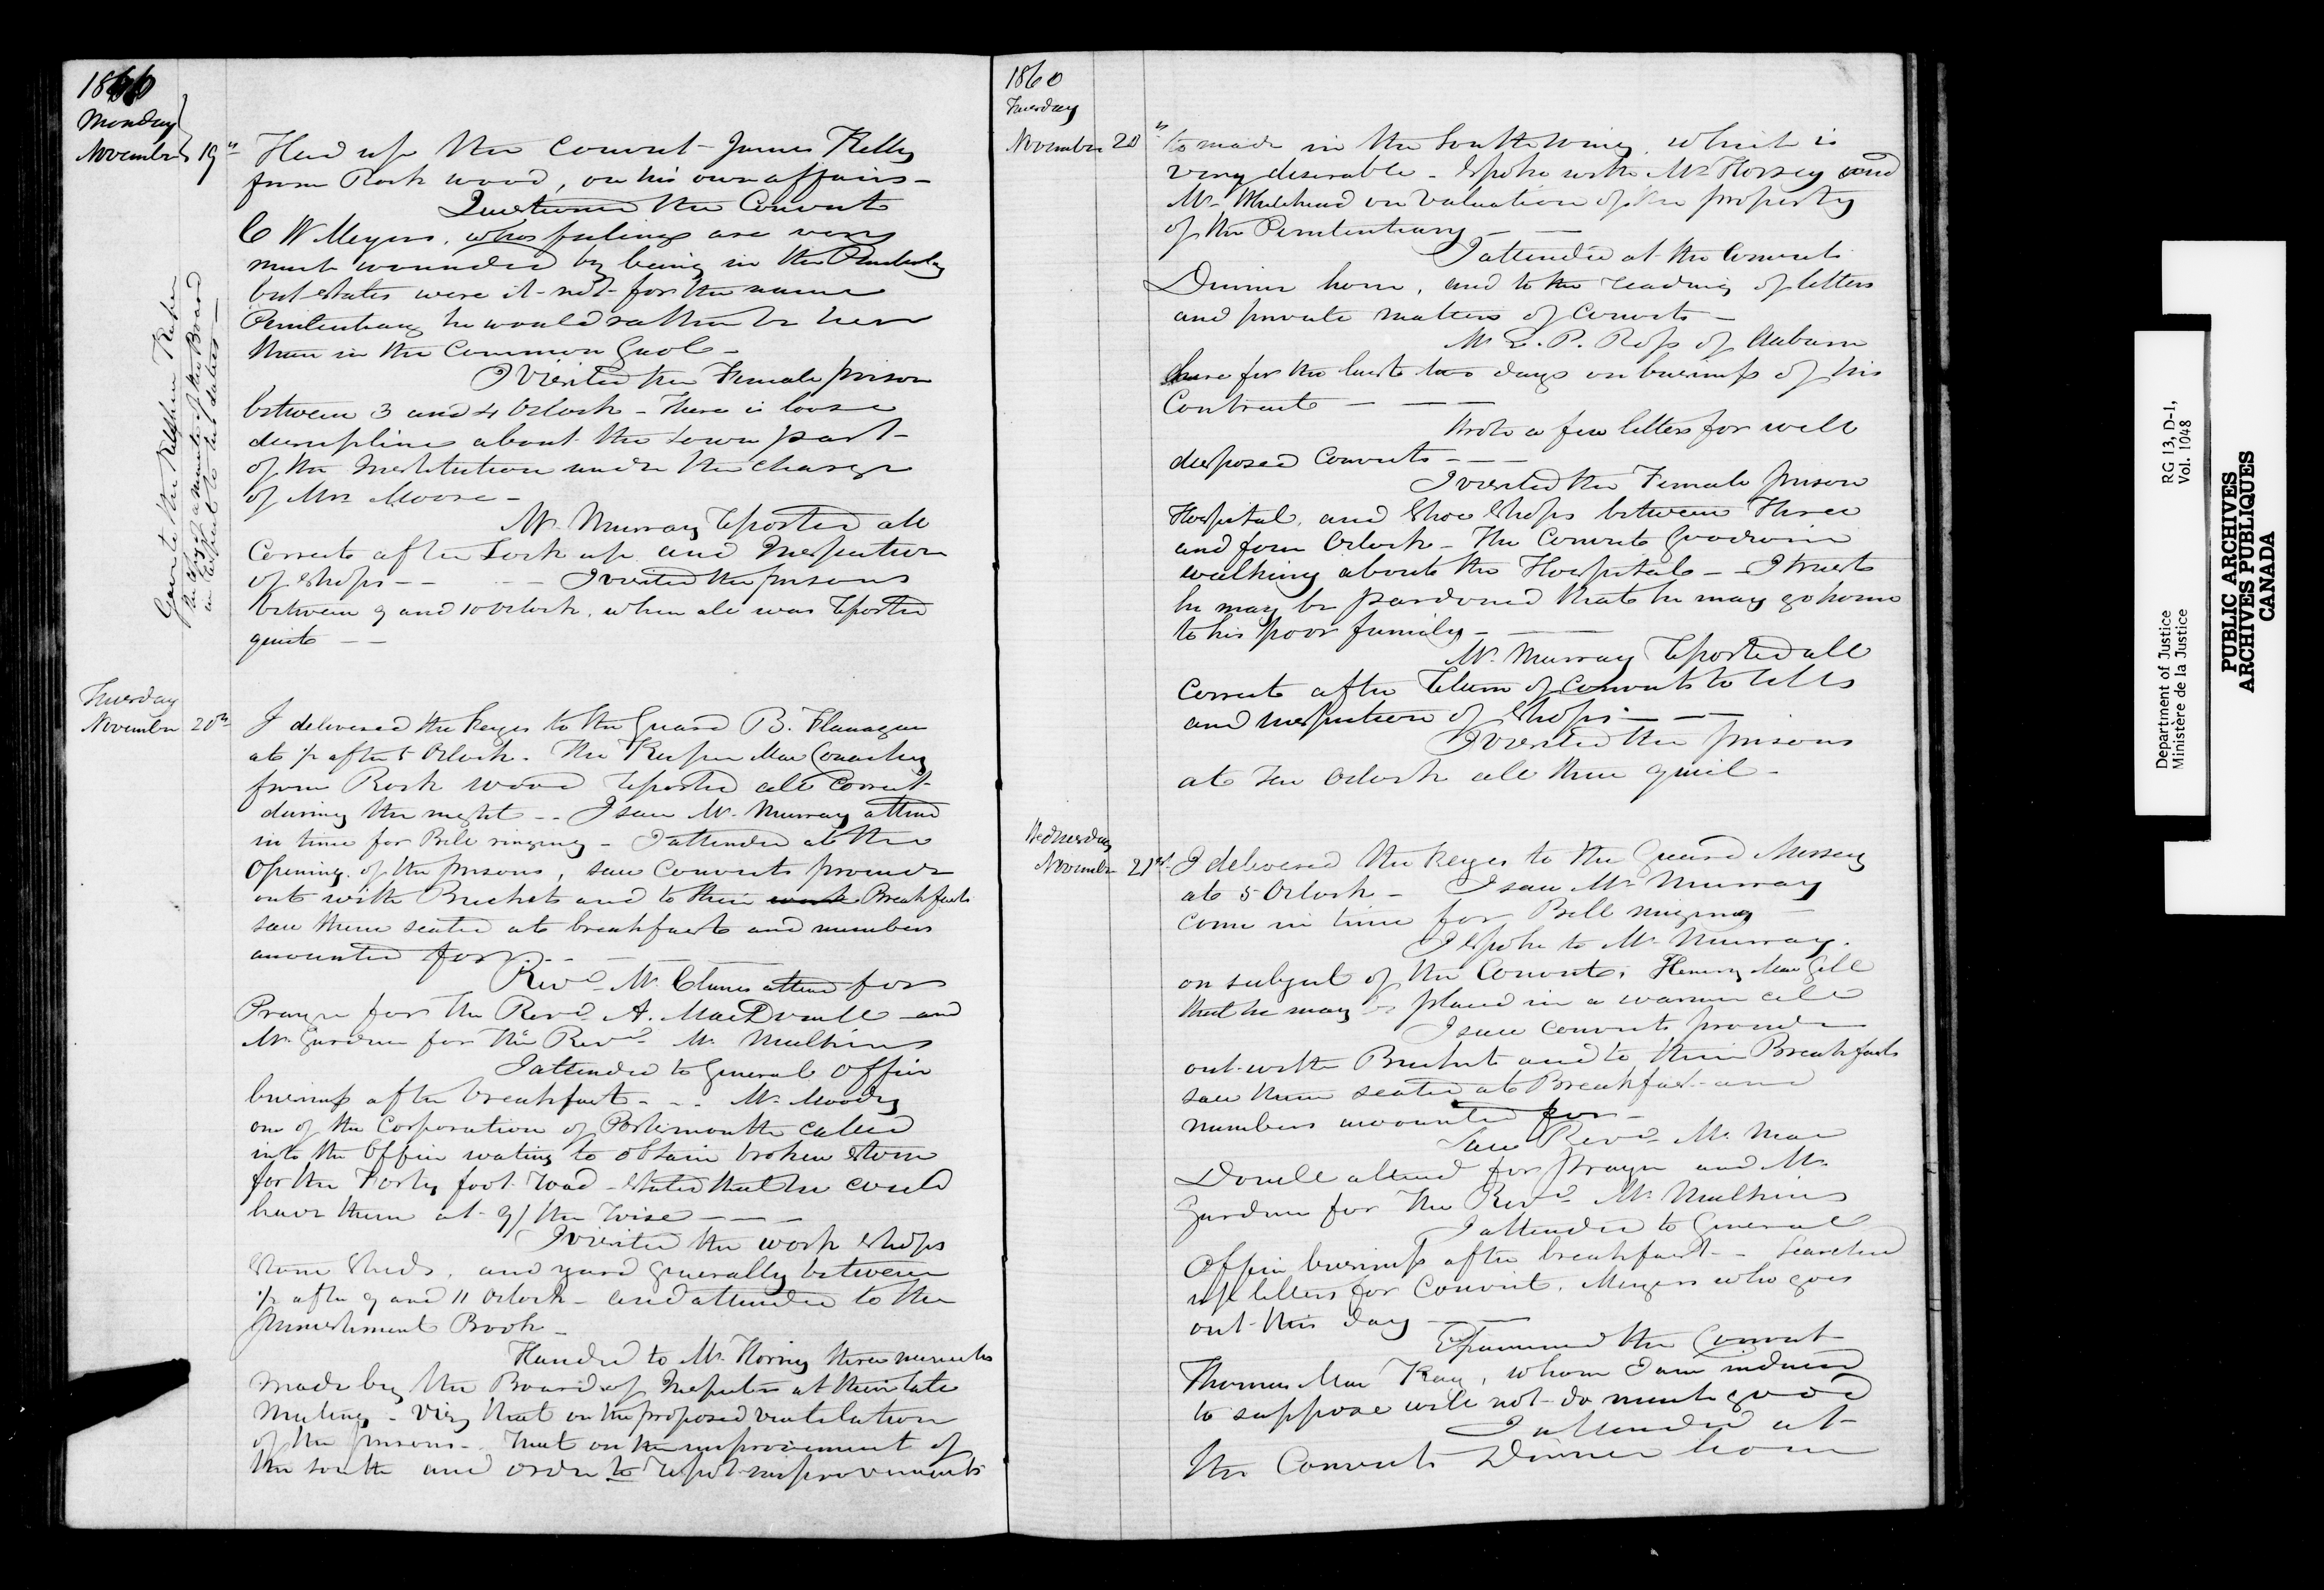 1860
Monday
November 19th
Had up the Convict James Kelly
from Rock wood, on his own affairs -
Questioned the Convict
C W Meyers, whos feelings are very
much wounded by being in the Penitentiary
but states were it not for the name
Penitentiary he would rather be here
than in the Common Gaol -
I Visited the Female prison
between 3 and 4 Oclock - There is loose
discipline about the part
of the Institution under the charge
of Mrs Moore -
Mr Murray reported all
Correct after Lock up and Inspection
of Shops - - - - I visited the prisons
between 9 and 10 Oclock, when all was reported
quiet - -
Gave to the Keeper
of the Board
in respect to
Tuesday
November 20th
I delivered the keys to the Guard B. Flanagan
at ½ after 5 Oclock. The Keeper Mac Conachy
from Rock wood reported all Correct
during the night - - I saw Mr Murray attend
in time for Bell ringing - I attended at the
Opening of the prisons, saw Convicts proceed
out with Buckets and to their work Breakfast
saw them seated at breakfast and numbers
accounted for - - -
Revd Mr Clunes attend for
Prayer for the Revd A. MacDonell and
Mr Gardiner for the Revd Mr Mulkins
I attended to General Office
business after breakfast - - - Mr Moody
one of the Corporation of Portsmouth called
into the Office wating to obtain broken stone
for the Forty foot road - stated that he could
have them at 9/ the Toise - - -
I visited the work shops
Stone Sheds, and yard generally between
½ after 9 and 11 Oclock - and attended to the
Punishment Book -
Handed to Mr Horsey three minutes
made by the Board of Inspectors at their late
Meeting - Viz, that on the proposed ventilation
of the prisons - that on the improvement of
the south and order to report improvements
1860
Tuesday
November 20th
to made in the South Wing, which is
very desirable - Spoke with Mr Horsey and
Mr Whitehead on Valuation of the property
of the Penitentiary - -
I attended at the Convicts
Dinner hour, and to the reading of letters
and private matters of Convicts -
Mr E. P. Ross of Auburn
here for the last two days on business of his
Contract - - -
Wrote a few letters for well
disposed Convicts - - -
I visited the Female prison
Hospital, and Shoe Shops between Three
and four Oclock - The Convict Goodwin
walking about the Hospital - I trust
he may be pardoned that he may go home
to his poor family - -
Mr Murray reported all
Correct after return of Convicts to cells
and inspection of Shops - - -
I visited the prisons
at Ten Oclock all then quiet -
Wednesday
November 21st
I delivered the keys to the Guard Massey
at 5 Oclock - I saw Mr Murray
come in time for Bell ringing -
I spoke to Mr Murray
on subject of the Convict, Henry Mac Gill
that he may be placed in a warmer cell
I saw convicts proceed
out with Buckets and to their Breakfast
saw them seated at Breakfast and
numbers accounted for -
Saw Revd Mr Mac
Donell attend for Prayer and Mr
Gardiner for the Revd Mr Mulkins
I attended to General
Office business after breakfast - - Searched
up letters for Convict, Meyers who goes
out this day - -
Examined the Convict
Thomas Mac Kay, whom I am induced
to suppose will not do much good
I attended at
the Convicts Dinner hour
Department of Justice
Ministère de la Justice
RG 13, D-1,
Vol. 1048
PUBLIC ARCHIVES
ARCHIVES PUBLIQUES
CANADA